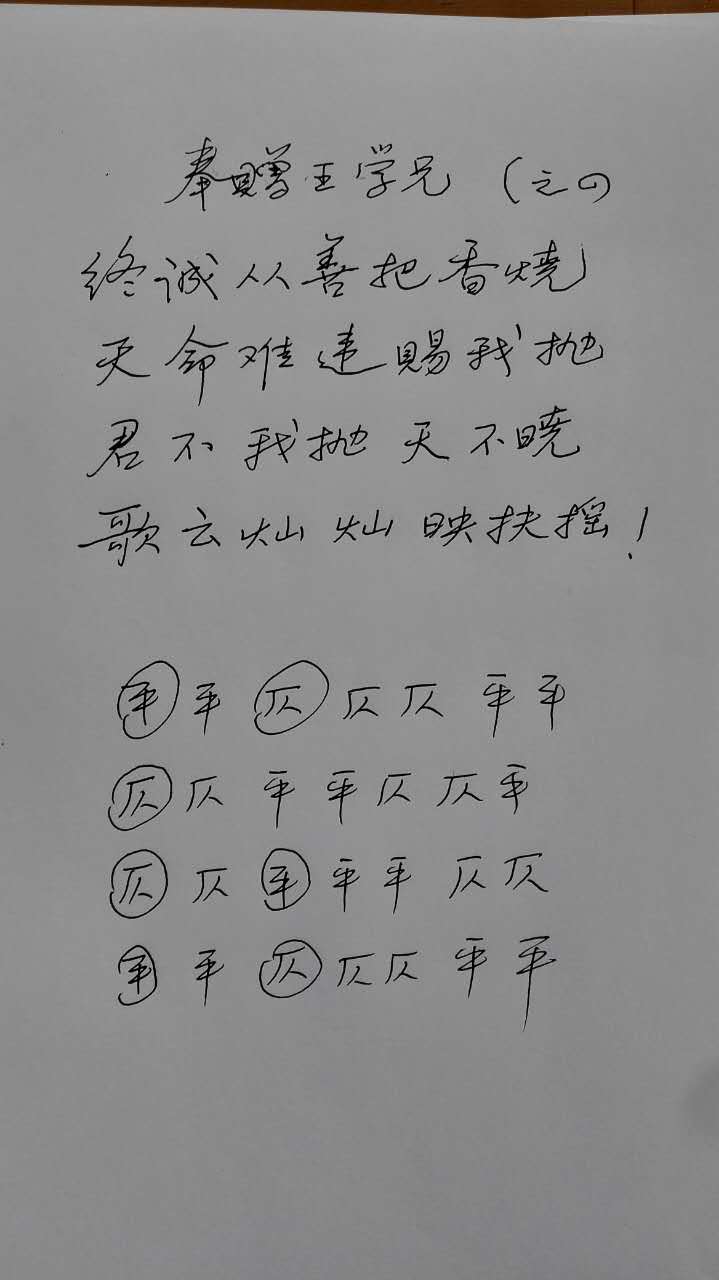 奉赠王学兄（之四
终诚从善把香烧
天命难违赐我抛
君不我抛天不晓
歌云灿灿映扶摇！
平平仄仄仄平平
仄仄平平仄仄平
仄仄平平平仄仄
平平仄仄仄平平